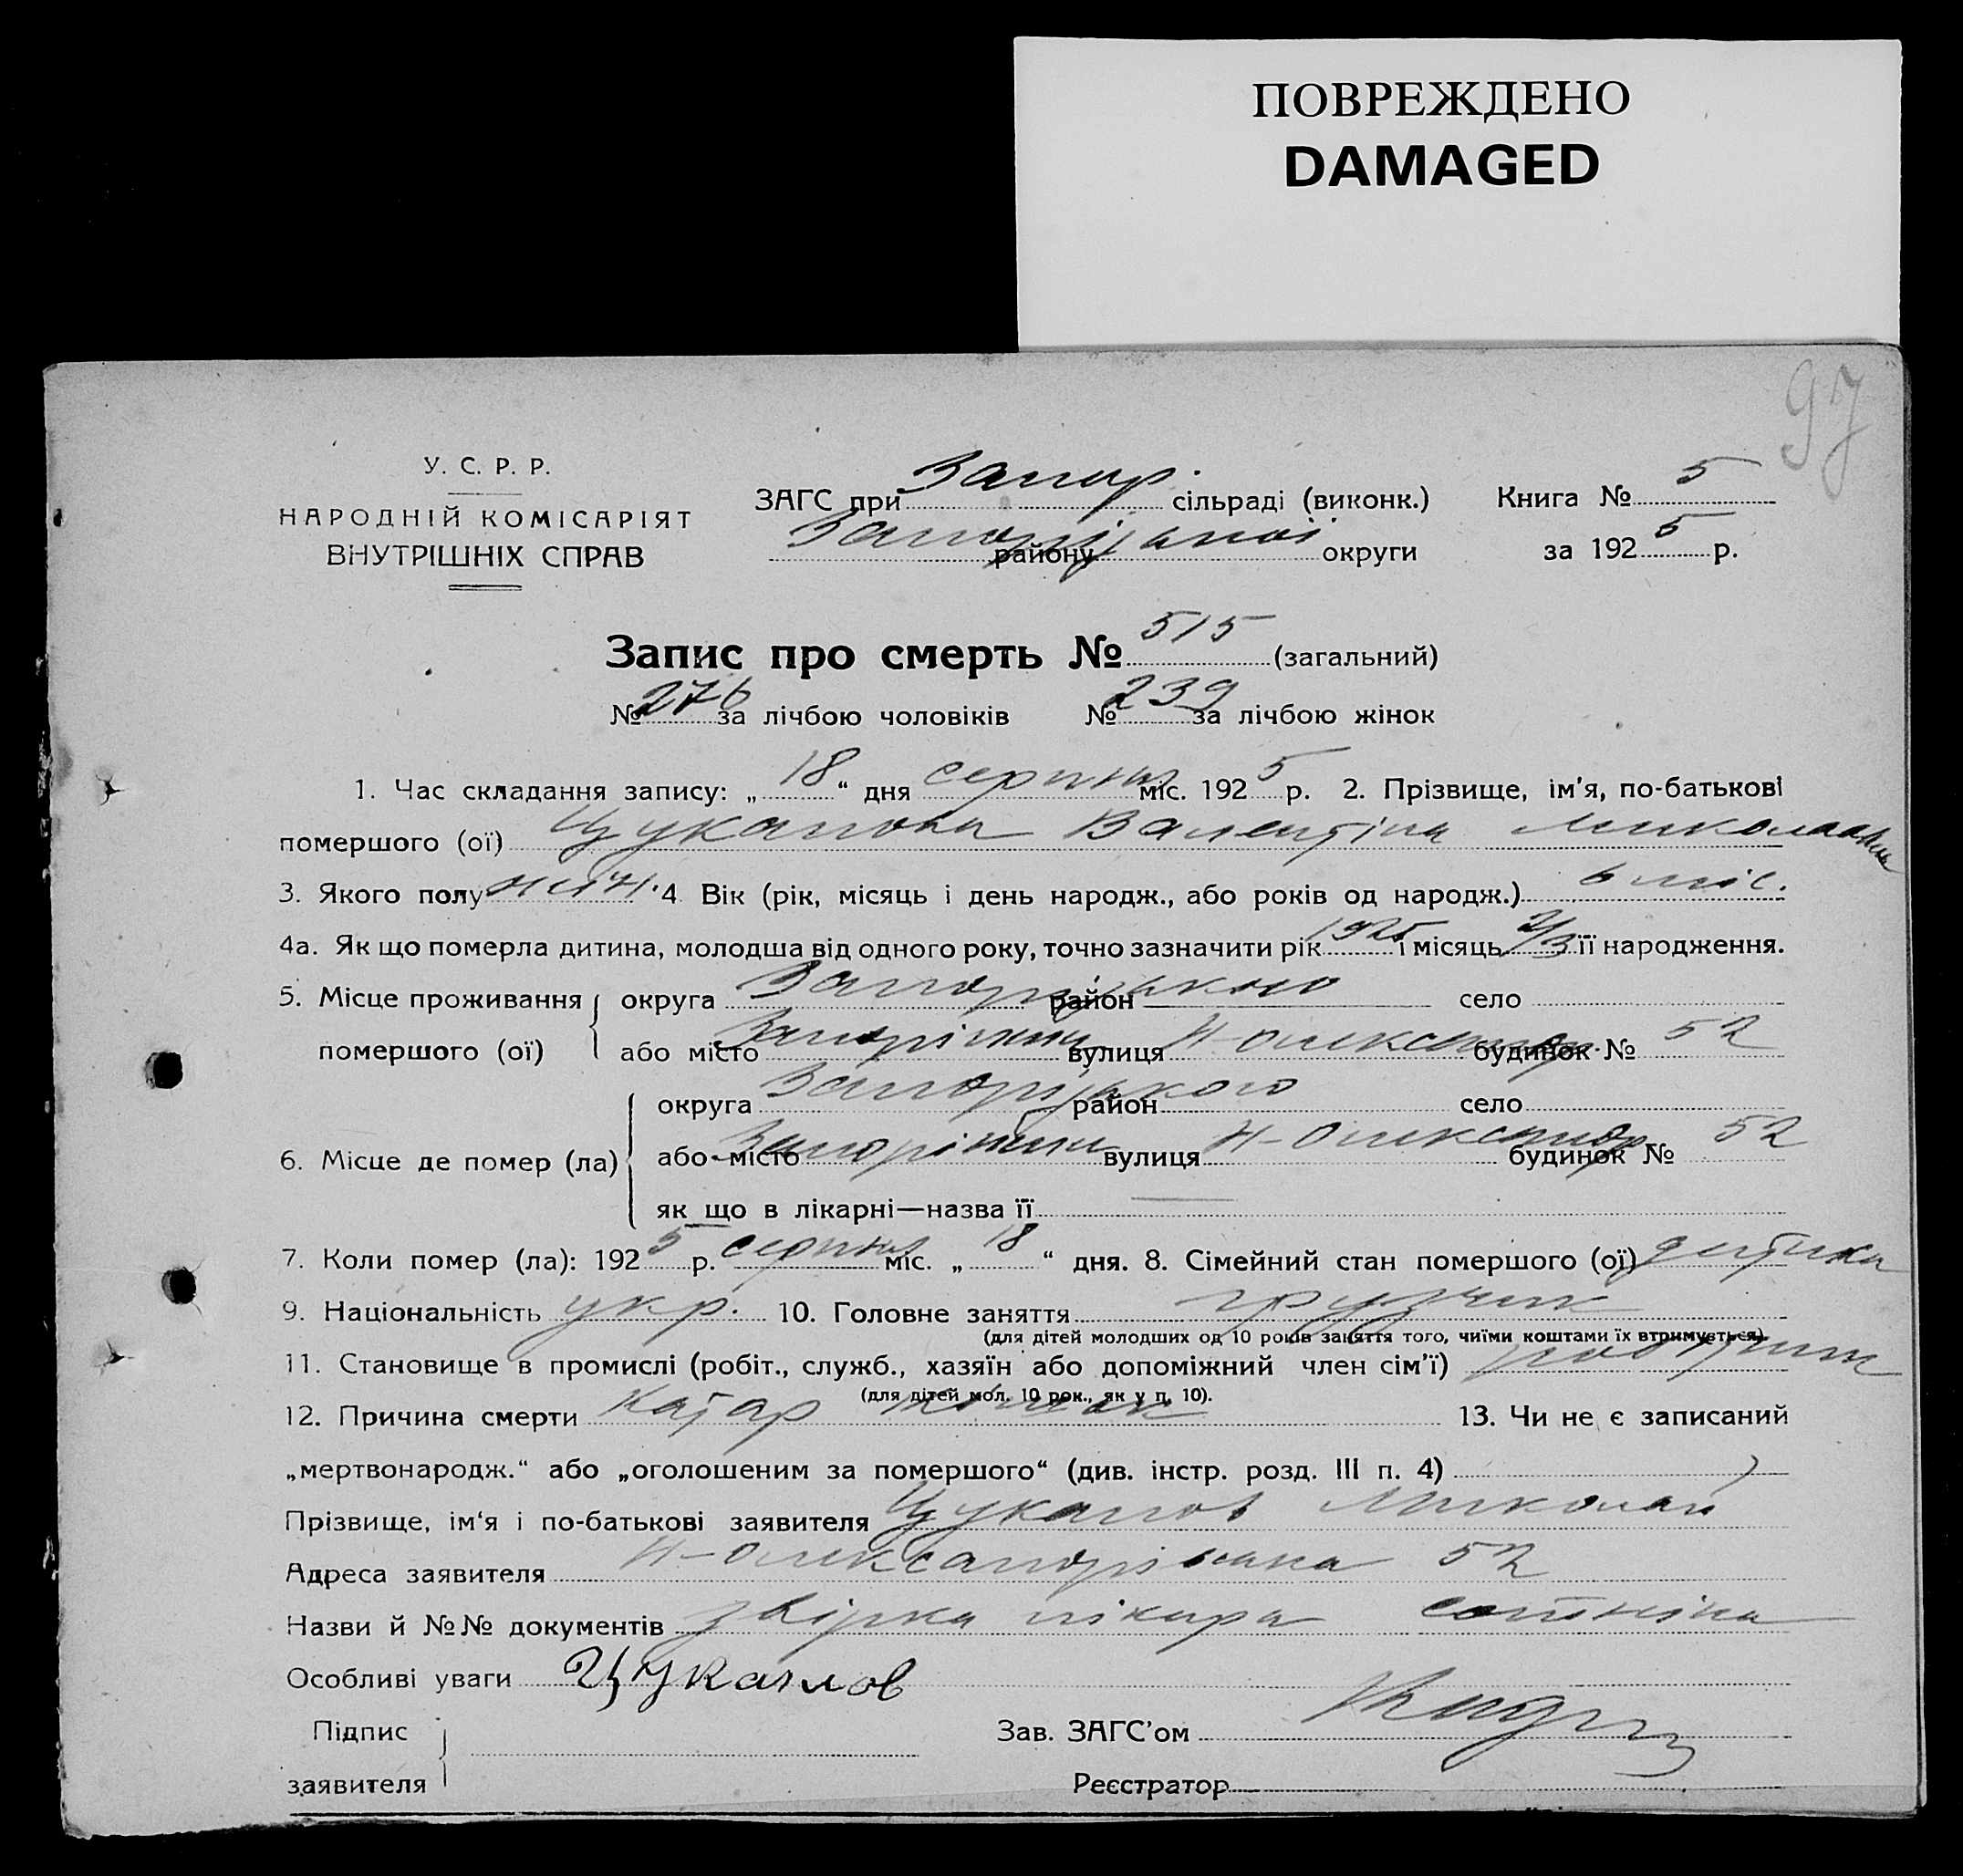 ПОВРЕЖДЕНО
DAMAGED
97
У. С. Р. Р.
НАРОДНІЙ КОМІСАРІЯТ
ВНУТРІШНІХ СПРАВ
ЗАГС при Запор. сільраді (виконк.) Книга № 5
району Запорізької округи за 1925 р.
Запис про смерть № 515 (загальний)
№ 276 за лічбою чоловіків № 239 за лічбою жінок
1. Час складання запису: „ 18 “ дня серпня міс. 1925 р. 2. Прізвище, ім'я, по-батькові
помершого (ої) Цуканова Валентіна Миколаївна
3. Якого полу жін. 4 Вік (рік, місяць і день народж., або років од народж.) 6 міс.
4а. Як що померла дитина, молодша від одного року, точно зазначити рік 1925 і місяць 2/3 її народження.
5. Місце проживання округа Запорізького район село
помершого (ої) або місто Запоріжжя вулиця Н-Олександр. будинок № 52
округа Запорізького район село
6. Місце де помер (ла) або місто Запоріжжя вулиця Н-Олександр будинок № 52
як що в лікарні—назва її
7. Коли помер (ла): 1925 р. серпня міс. „ 18 “ дня. 8. Сімейний стан помершого (ої) дитина
9. Національність укр. 10. Головне заняття грузчик
(для дітей молодших од 10 років заняття того, чиїми коштами їх втримується)
11. Становище в промислі (робіт., служб., хазяїн або допоміжний член сім'ї) робітник
(для дітей мол. 10 рок., як у п. 10).
12. Причина смерти Катар кишок 13. Чи не є записаний
„мертвонародж.“ або „оголошеним за помершого“ (див. інстр. розд. III п. 4)
Прізвище, ім'я і по-батькові заявителя Цуканов Миколай
Адреса заявителя Н-Олександрівська 52
Назви й №№ документів лікара
Особливі уваги Цуканов
Підпис
заявителя
Зав. ЗАГС'ом
Реєстратор